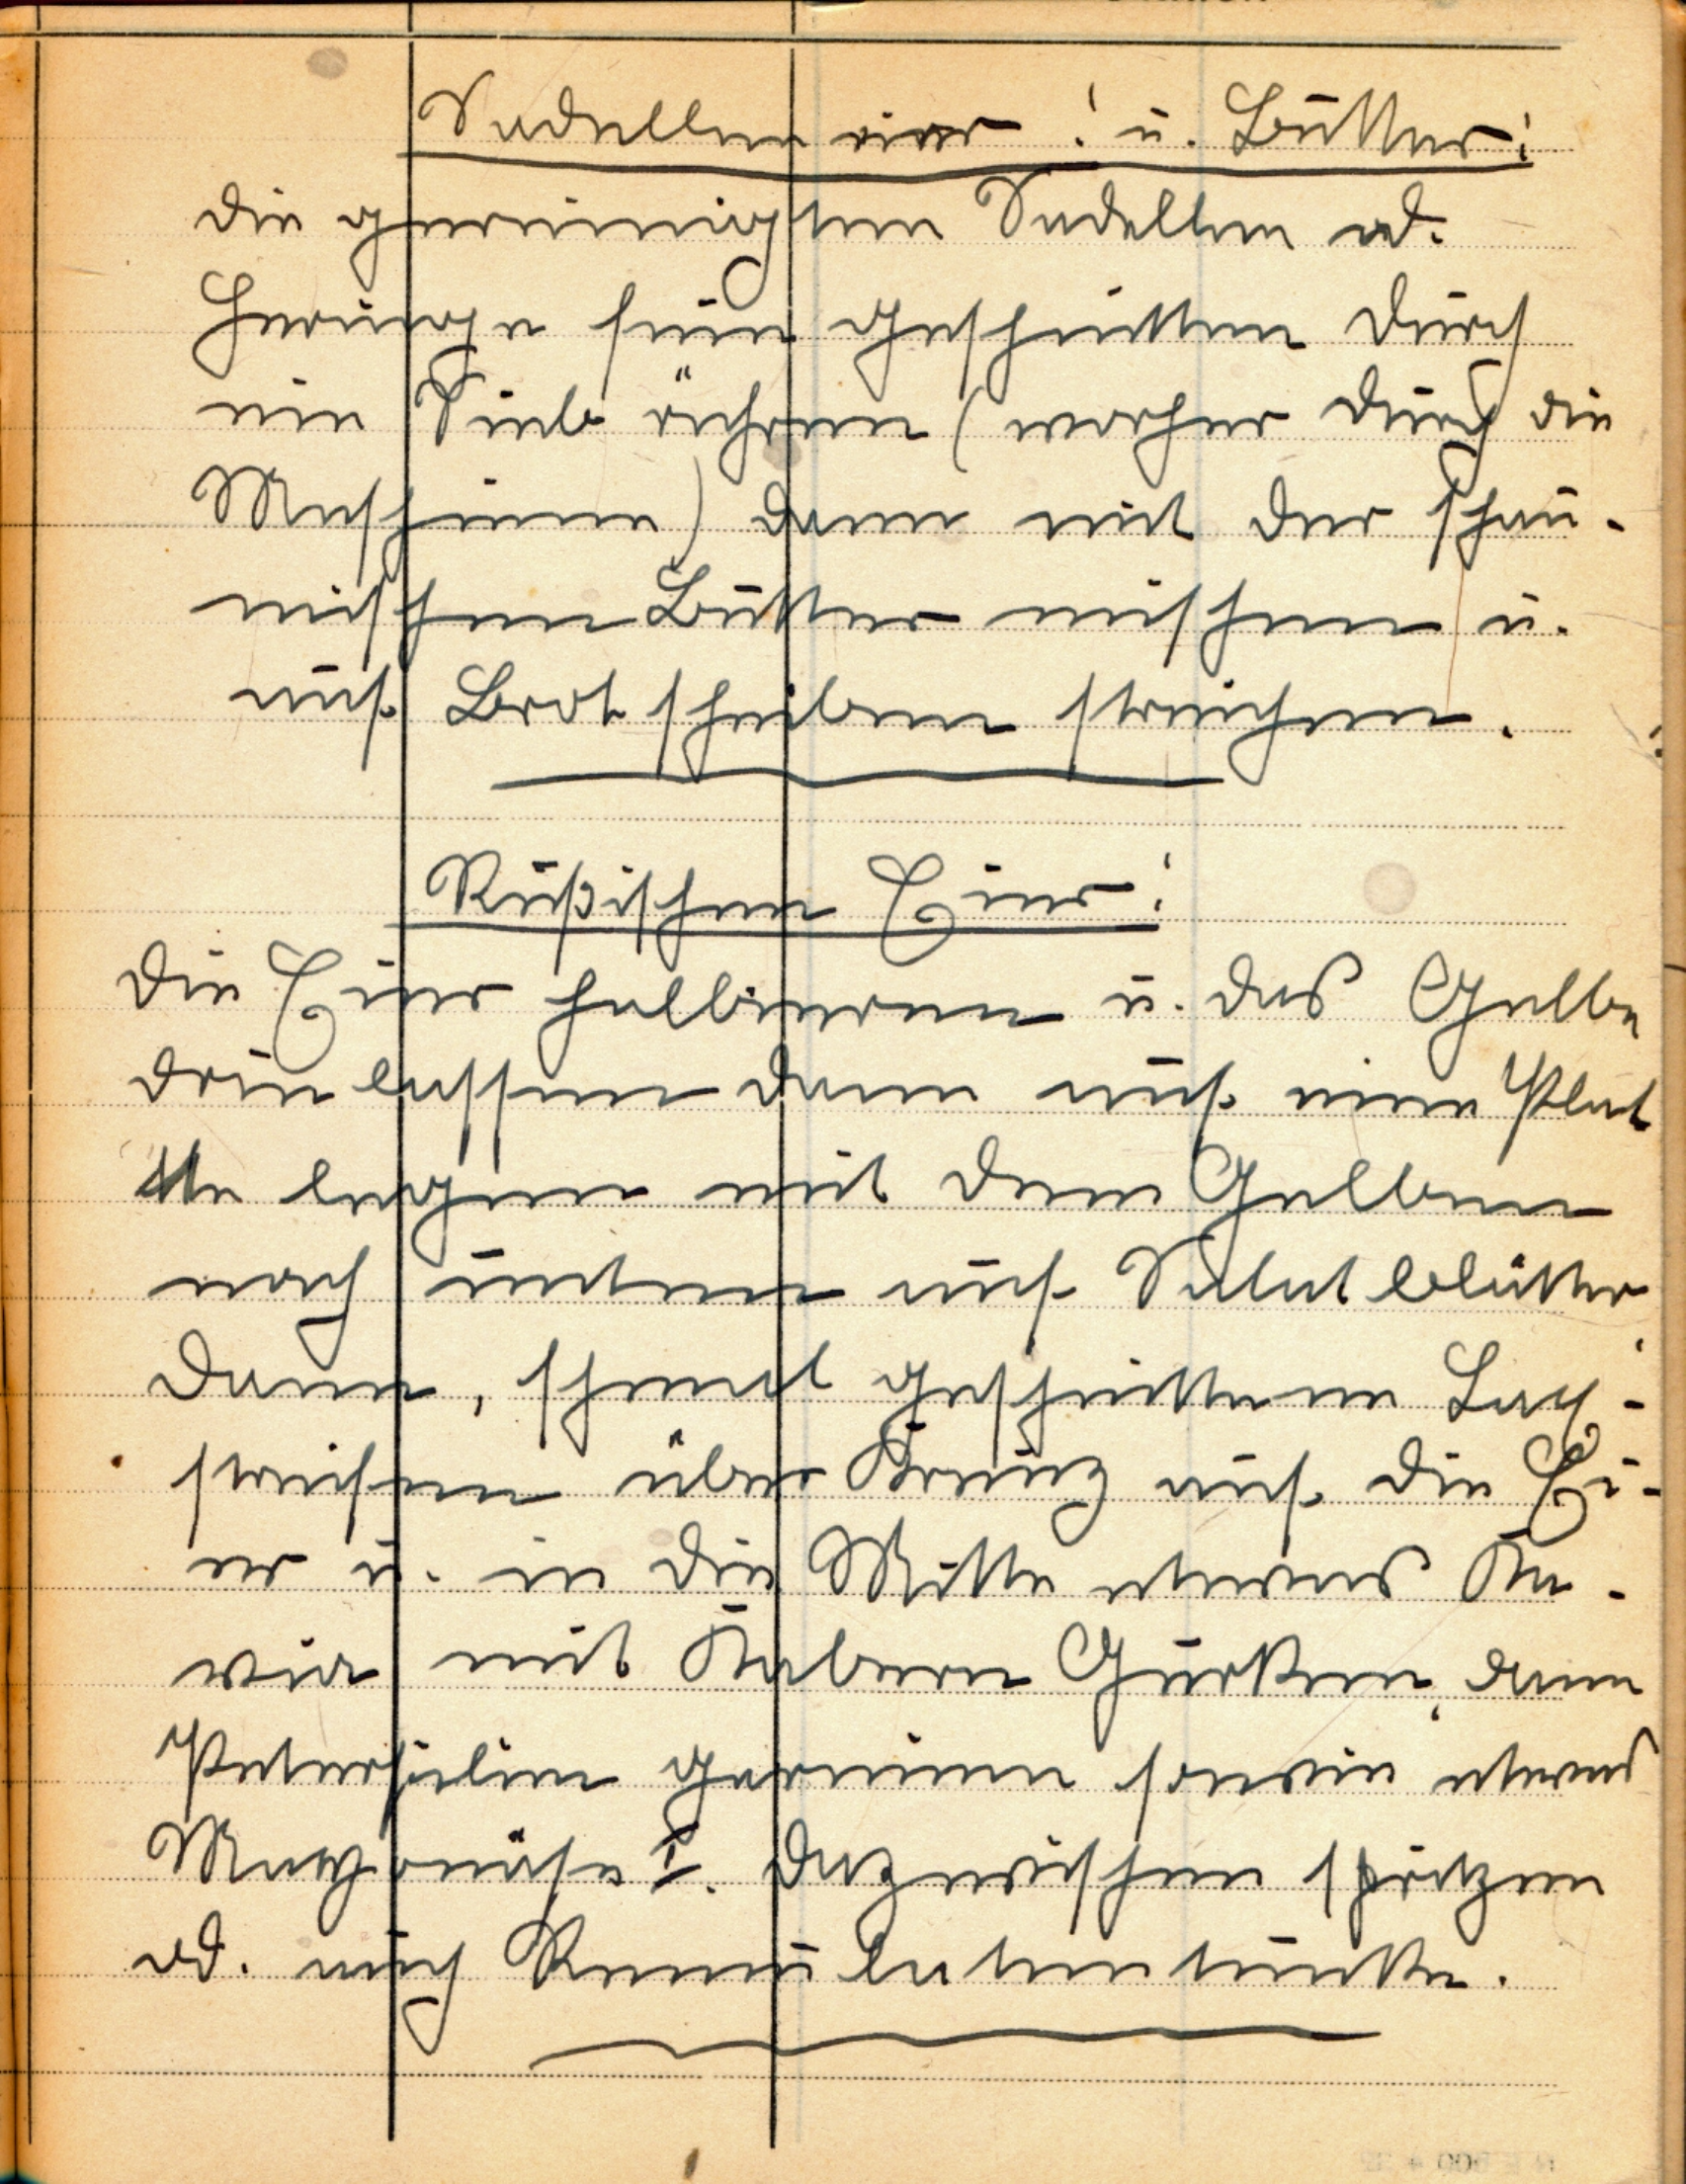 Sardellen eier! u. Butter!
die gereinigten Sardellen od.
Heringe fein geschnitten durch
ein Sieb rühren (vorher durch die
Maschine) dann mit der schau-
mischen Butter mischen u.
auf Brot scheiben streichen.
Rußischen Eier!
Die Eier halbieren u. das Gelbe
drin lassen dann auf eine Plat
tte legen mit dem Gelben
nach unten auf Salat blätter
dann, schmal geschnittene Lachs-
streifen über Kreuz auf die Ei-
er u. in die Mitte etwas Ka-
viar mit Kabern Gurken, dann
Petersilien garnieren sowie etwas
Mayonäse I. dazwischen spritzen
od. auch Remuladentunke.